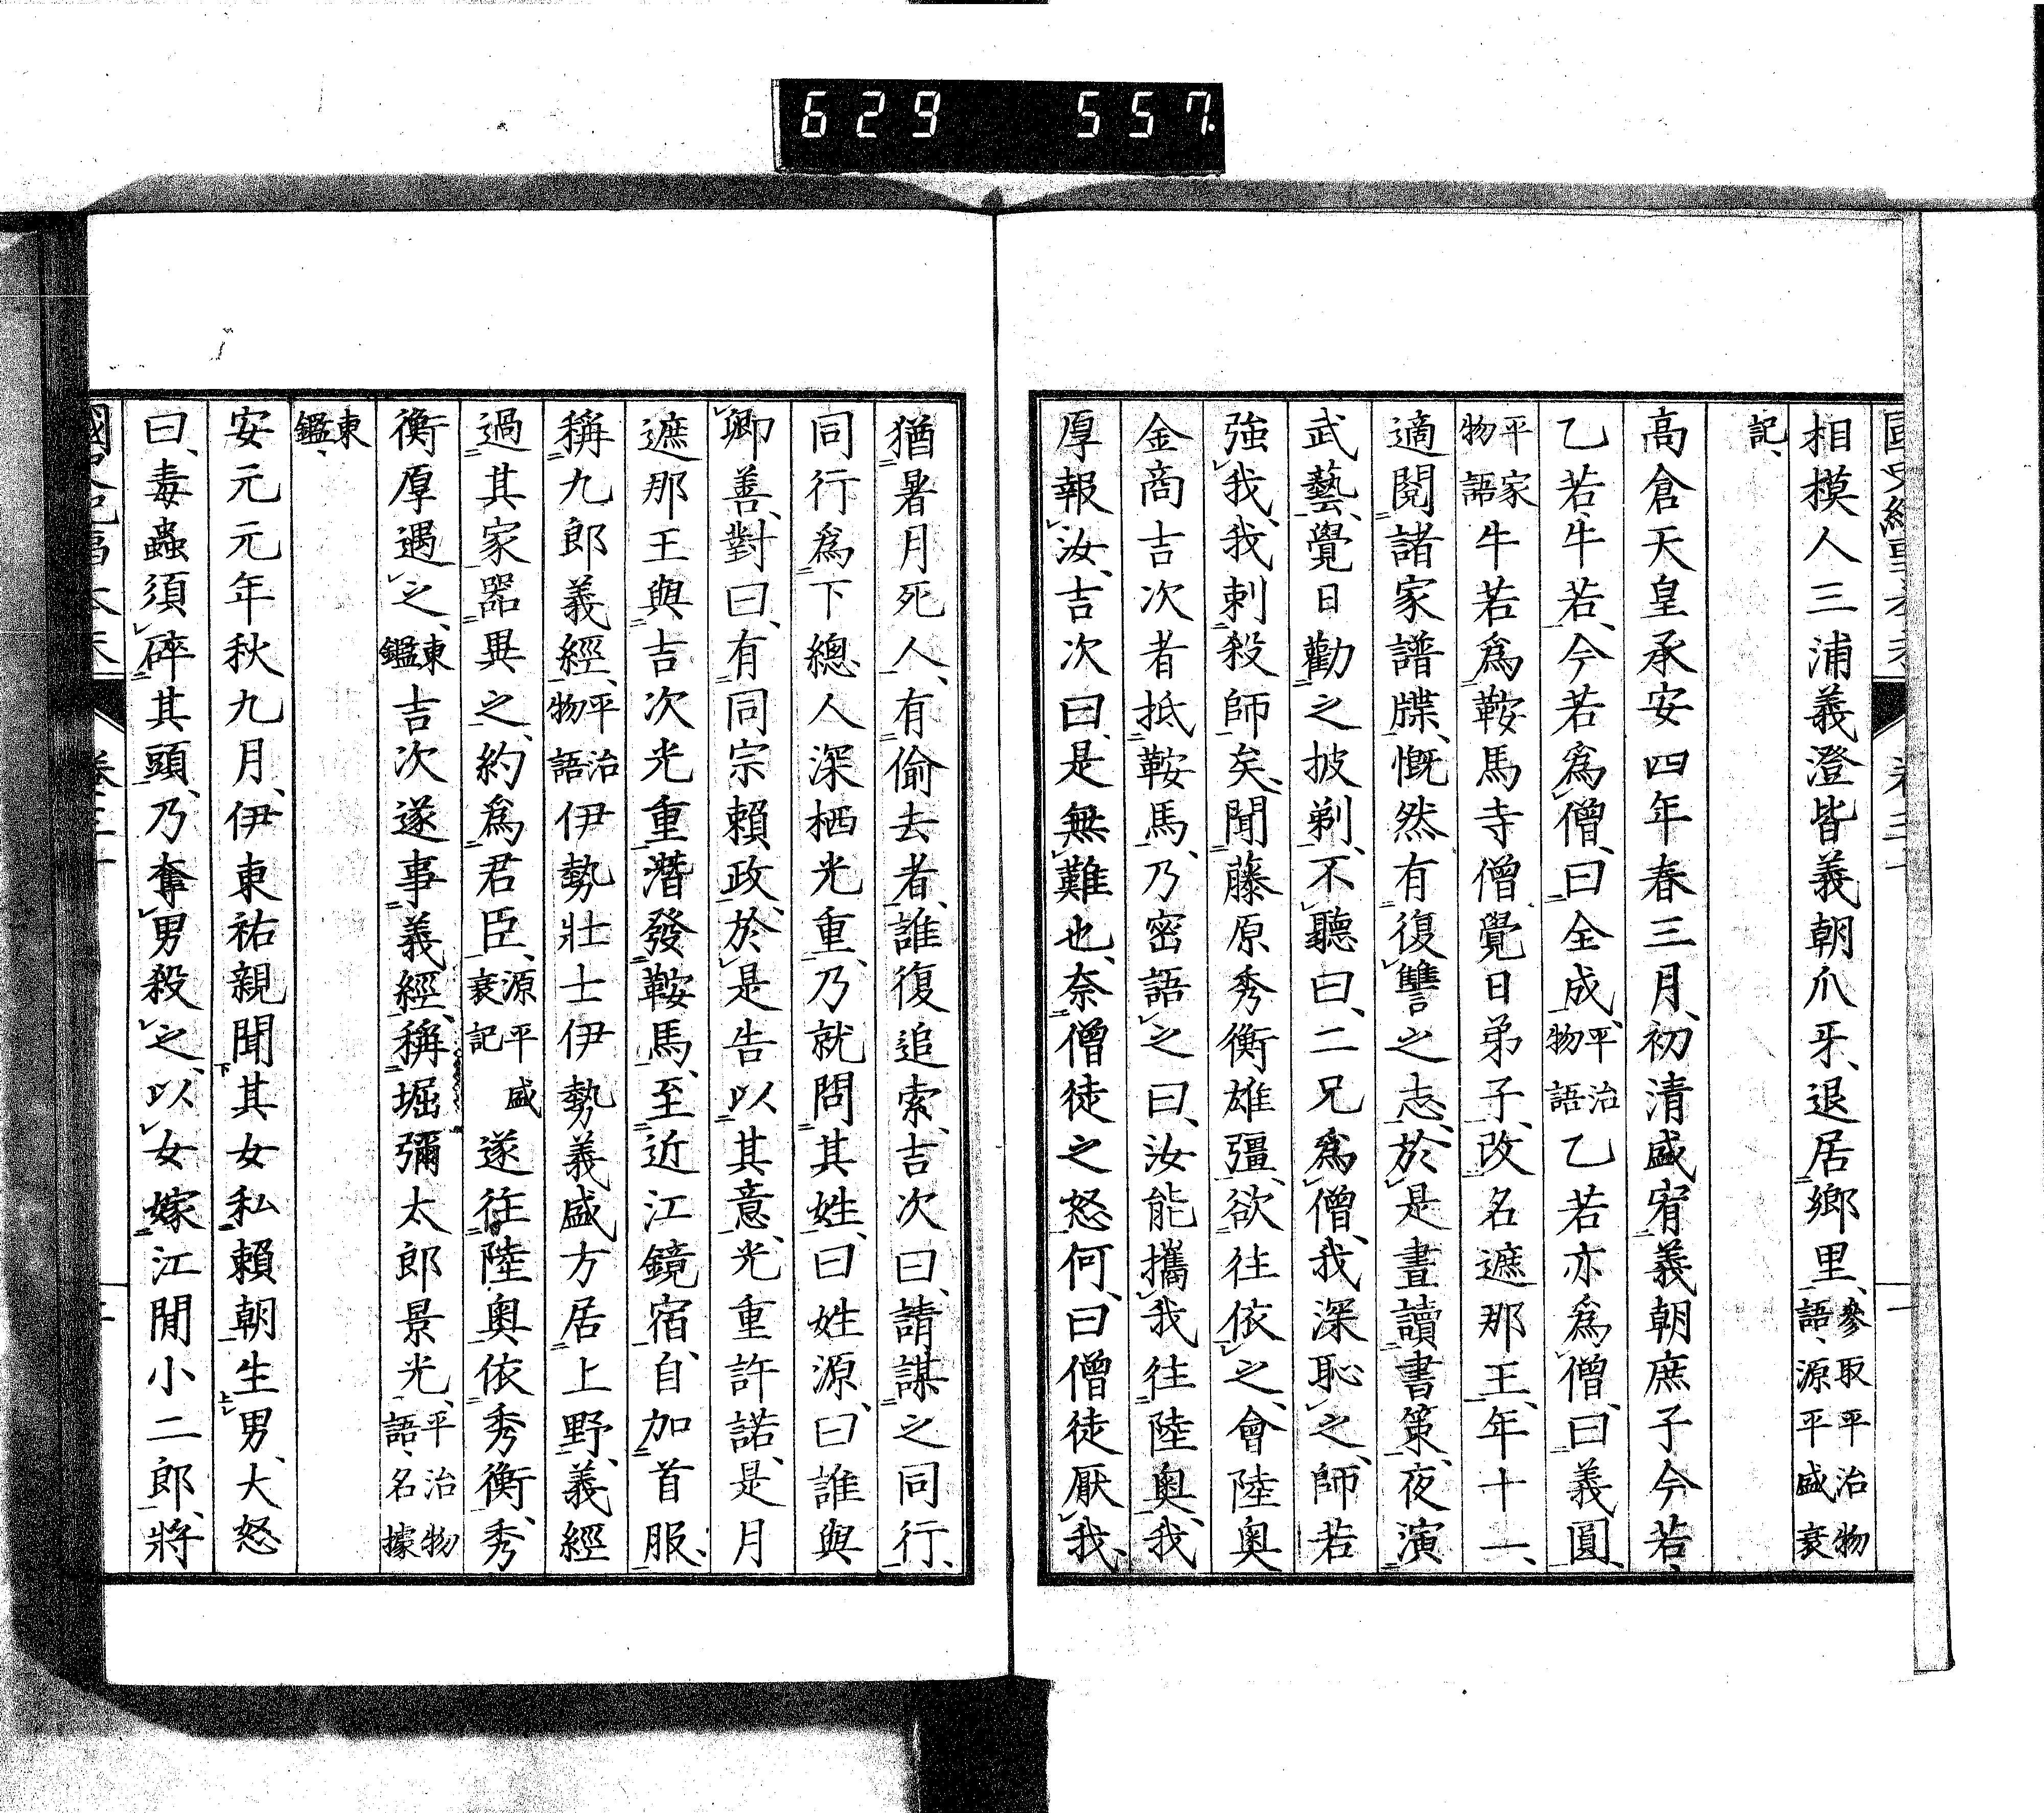 629 557
相摸人三浦義澄皆義朝爪牙、退居鄉里、參取平治物語、源平盛衰
記、
高倉天皇承安四年春三月、初清盛宥義朝庶子今若、
乙若、牛若、今若爲僧、曰全成、平治物語乙若亦爲僧、曰義圓、
平家物語牛若爲鞍馬寺僧覺日弟子、改名遮那王、年十一、
適閱諸家譜牒、慨然有復讐之志、於是晝讀書策、夜演
武藝、覺日勸之披剃、不聽曰、二兄爲僧、我深恥之、師若
強我、我刺殺師矣、聞藤原秀衡雄彊、欲往依之、會陸奧
金商吉次者抵鞍馬、乃密語之曰、汝能攜我往陸奧、我
厚報汝、吉次曰、是無難也、奈僧徒之怒何、曰僧徒厭我、
猶暑月死人、有偷去者、誰復追索、吉次曰、請謀之同行、
同行爲下總人深栖光重、乃就問其姓、曰姓源、曰誰與
卿善、對曰、有同宗賴政、於是告以其意、光重許諾、是月
遮那王與吉次光重潛發鞍馬、至近江鏡宿、自加首服、
稱九郎義經、平治物語伊勢壯士伊勢義盛方居上野、義經
過其家器異之、約爲君臣、源平盛衰記遂往陸奧依秀衡、秀
衡厚遇之、東鑑吉次遂事義經、稱堀彌太郎景光、平治物語、名據
東鑑、
安元元年秋九月、伊東祐親聞其女私賴朝生男、大怒
曰、毒蟲須碎其頭、乃奪男殺之、以女嫁江間小二郎、將